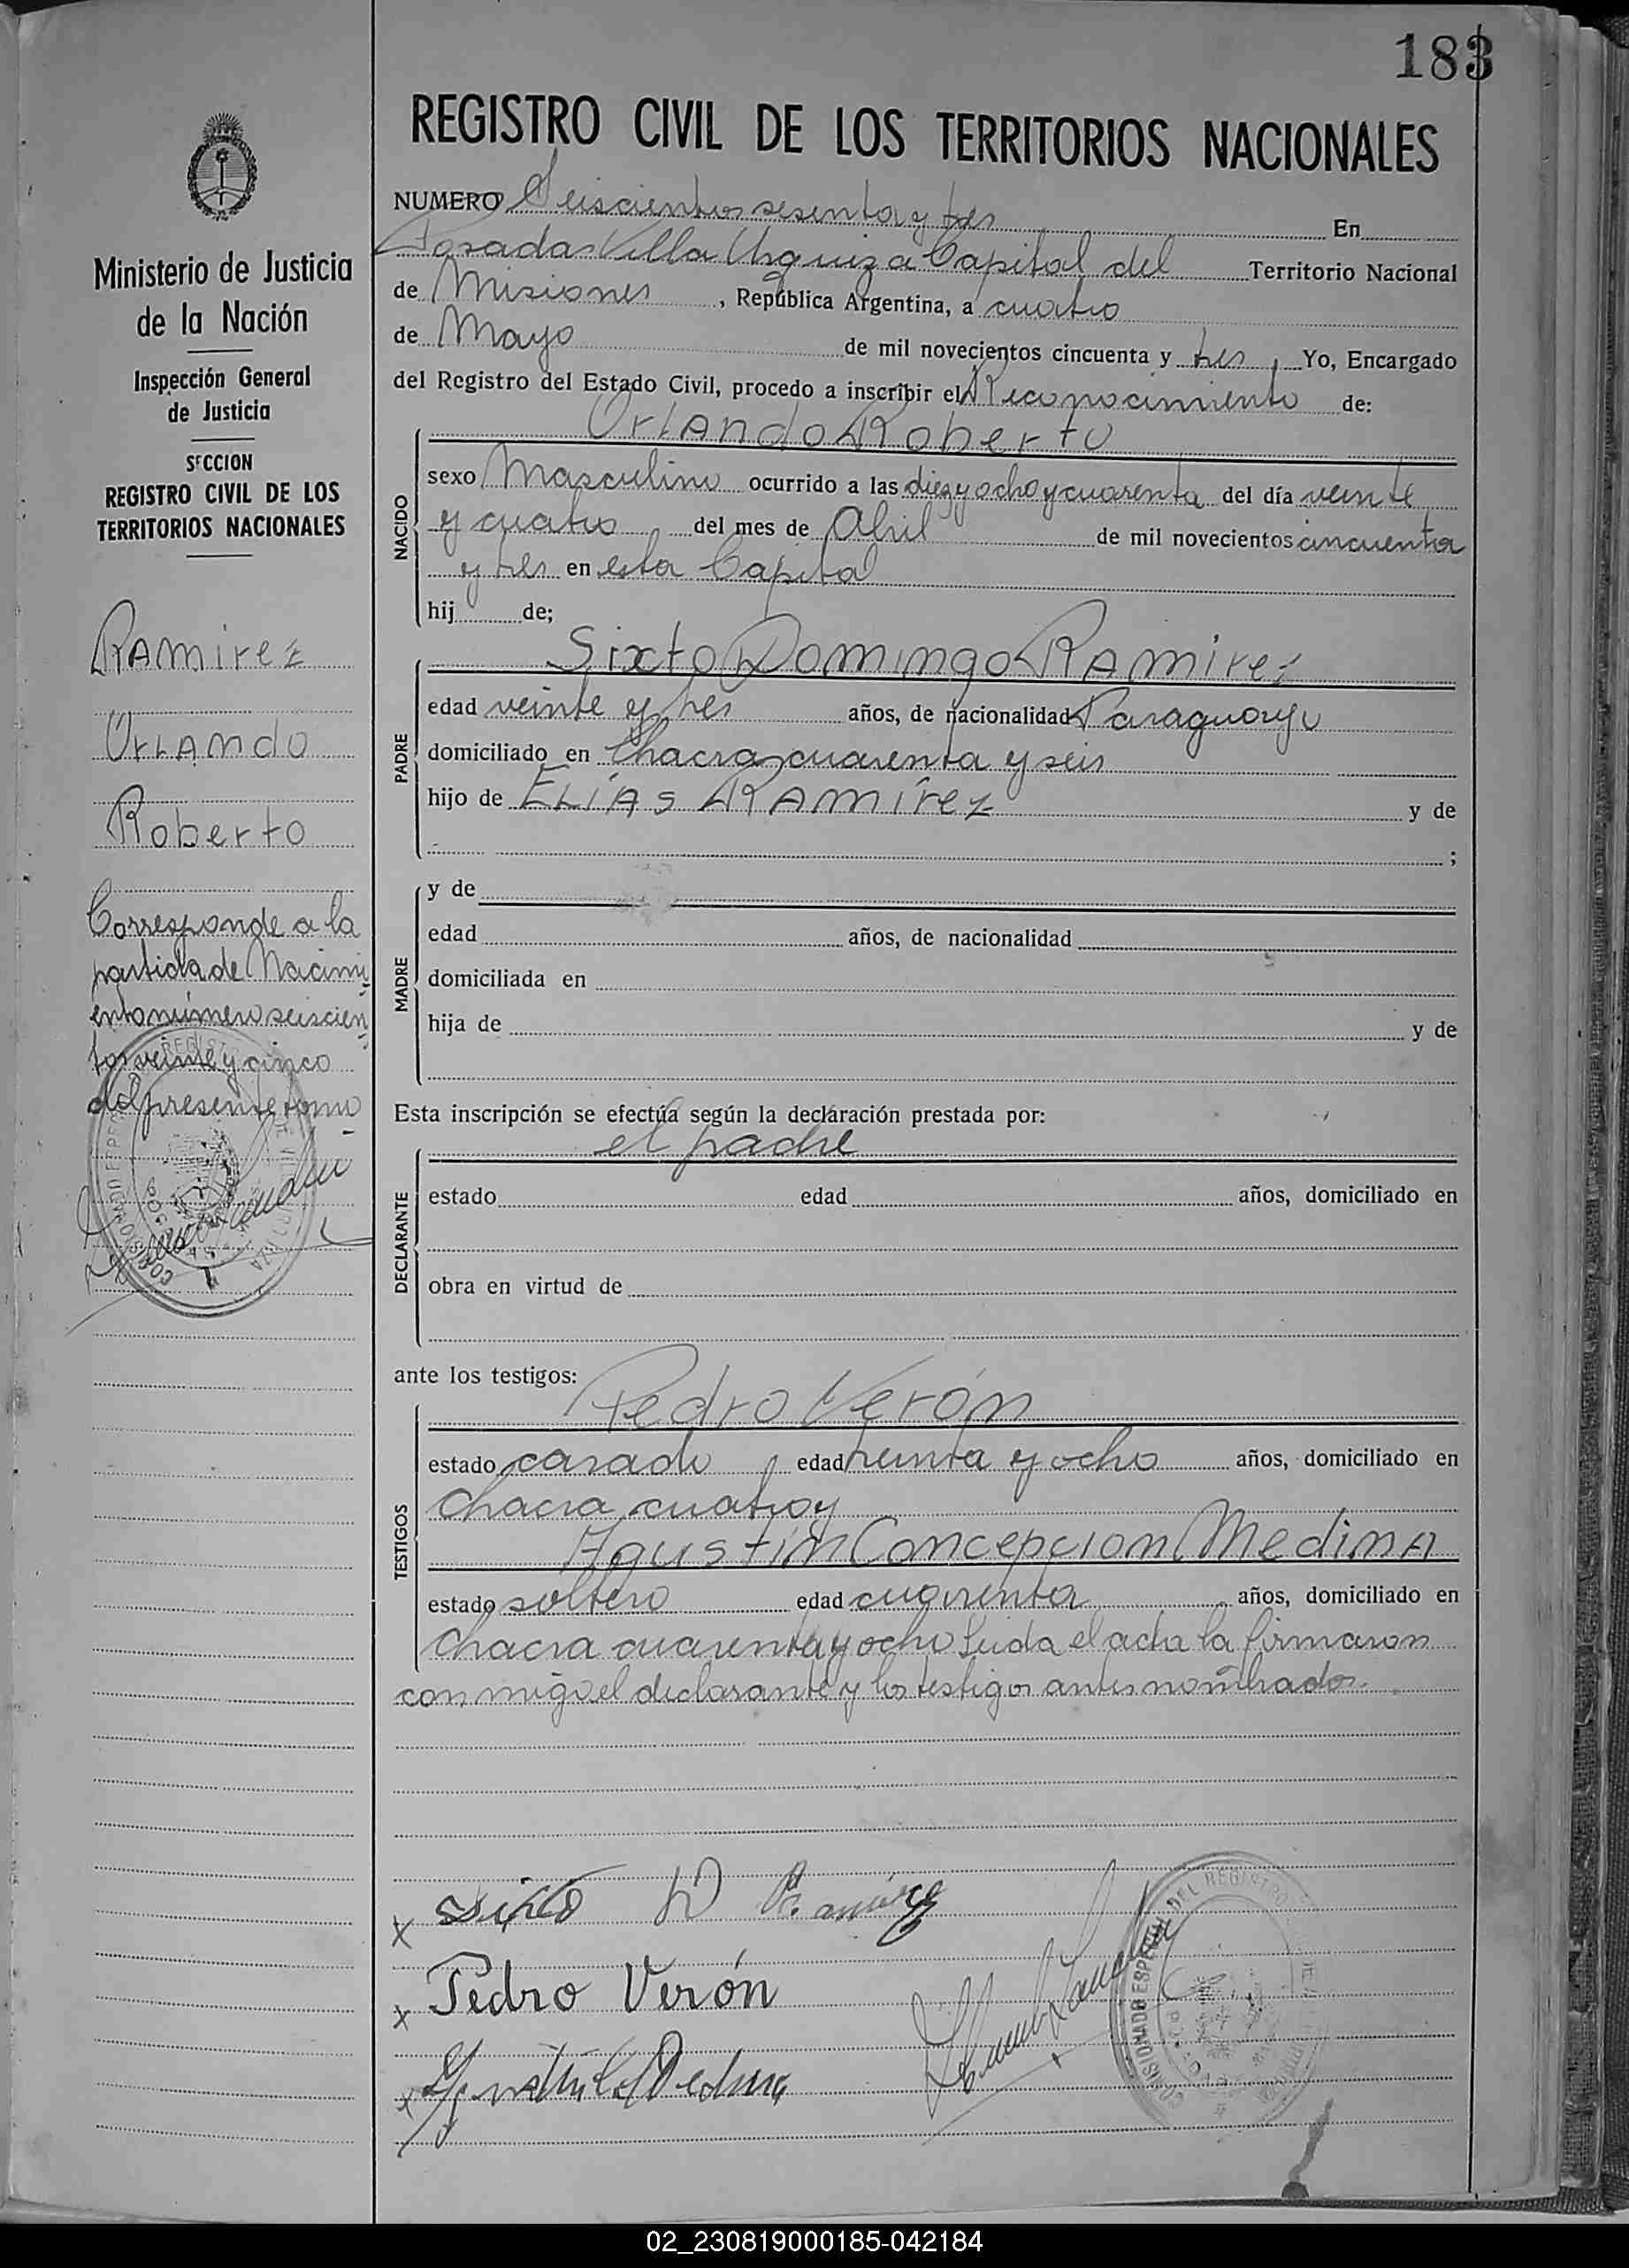 183
REGISTRO CIVIL DE LOS TERRITORIOS NACIONALES
Ministerio de Justicia
de la Nación
Inspección General
de Justicia
SECCION
REGISTRO CIVIL DE LOS
TERRITORIOS NACIONALES
Ramirez
Orlando
Roberto
Corresponde a la
partida de Nacimi
ento número seiscien
tos veinte y cinco
del presente tomo
NUMERO Seiscientos sesenta y tres En
Posadas Villa Urquiza Capital del Territorio Nacional
de Misiones, República Argentina, a cuatro
de Mayo de mil novecientos cincuenta y tres, Yo, Encargado
del Registro del Estado Civil, procedo a inscribir el Reconocimiento de:
Orlando Roberto
NACIDO
sexo Masculino ocurrido a las diez y ocho y cuarenta del día veinte
y cuatro del mes de Abril de mil novecientos cincuenta
y tres en esta Capital
hij de;
Sixto Domingo Ramirez
PADRE
edad veinte y tres años, de nacionalidad Paraguayo
domiciliado en Chacra cuarenta y seis
hijo de Elías Ramírez y de
;
MADRE
y de
edad años, de nacionalidad
domiciliada en
hija de y de
Esta inscripción se efectúa según la declaración prestada por:
el padre
DECLARANTE
estado edad años, domiciliado en
obra en virtud de
ante los testigos:
Pedro Verón
TESTIGOS
estado casado edad treinta y ocho años, domiciliado en
chacra cuatro y
Agustín Concepcion Medina
estado soltero edad cuarenta años, domiciliado en
chacra cuarenta y ocho Leida el acta la firmaron
conmigo el declarante y los testigos antes nombrados.
x Sixto D Ramírez
x Pedro Verón
x Agustín C Medina
COMISIONADO ESPECIAL DEL REGISTRO
02_230819000185-042184